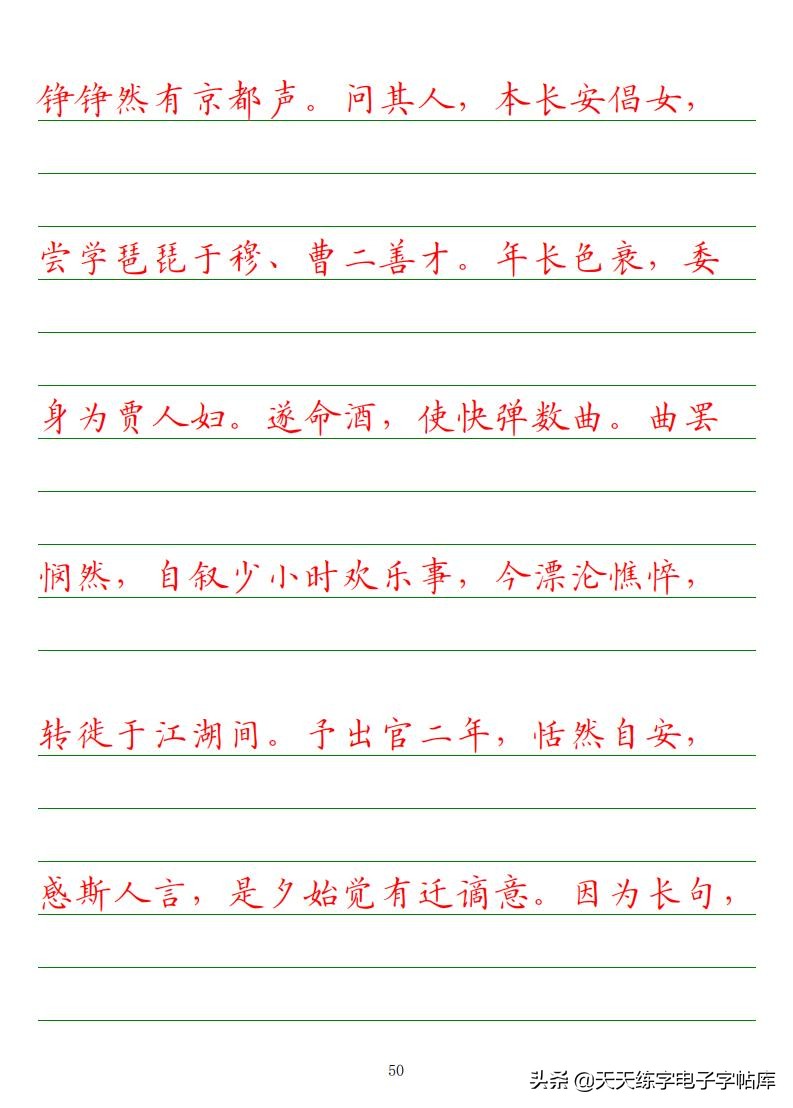 铮铮然有京都声。问其人，本长安倡女，
尝学琵琶于穆、曹二善才。年长色衰，委
身为贾人妇。遂命酒，使快弹数曲。曲罢
悯然，自叙少小时欢乐事，今漂沦憔悴，
转徙于江湖间。予出官二年，恬然自安，
感斯人言，是夕始觉有迁谪意。因为长句，
50
头条 @天天练字电子字帖库